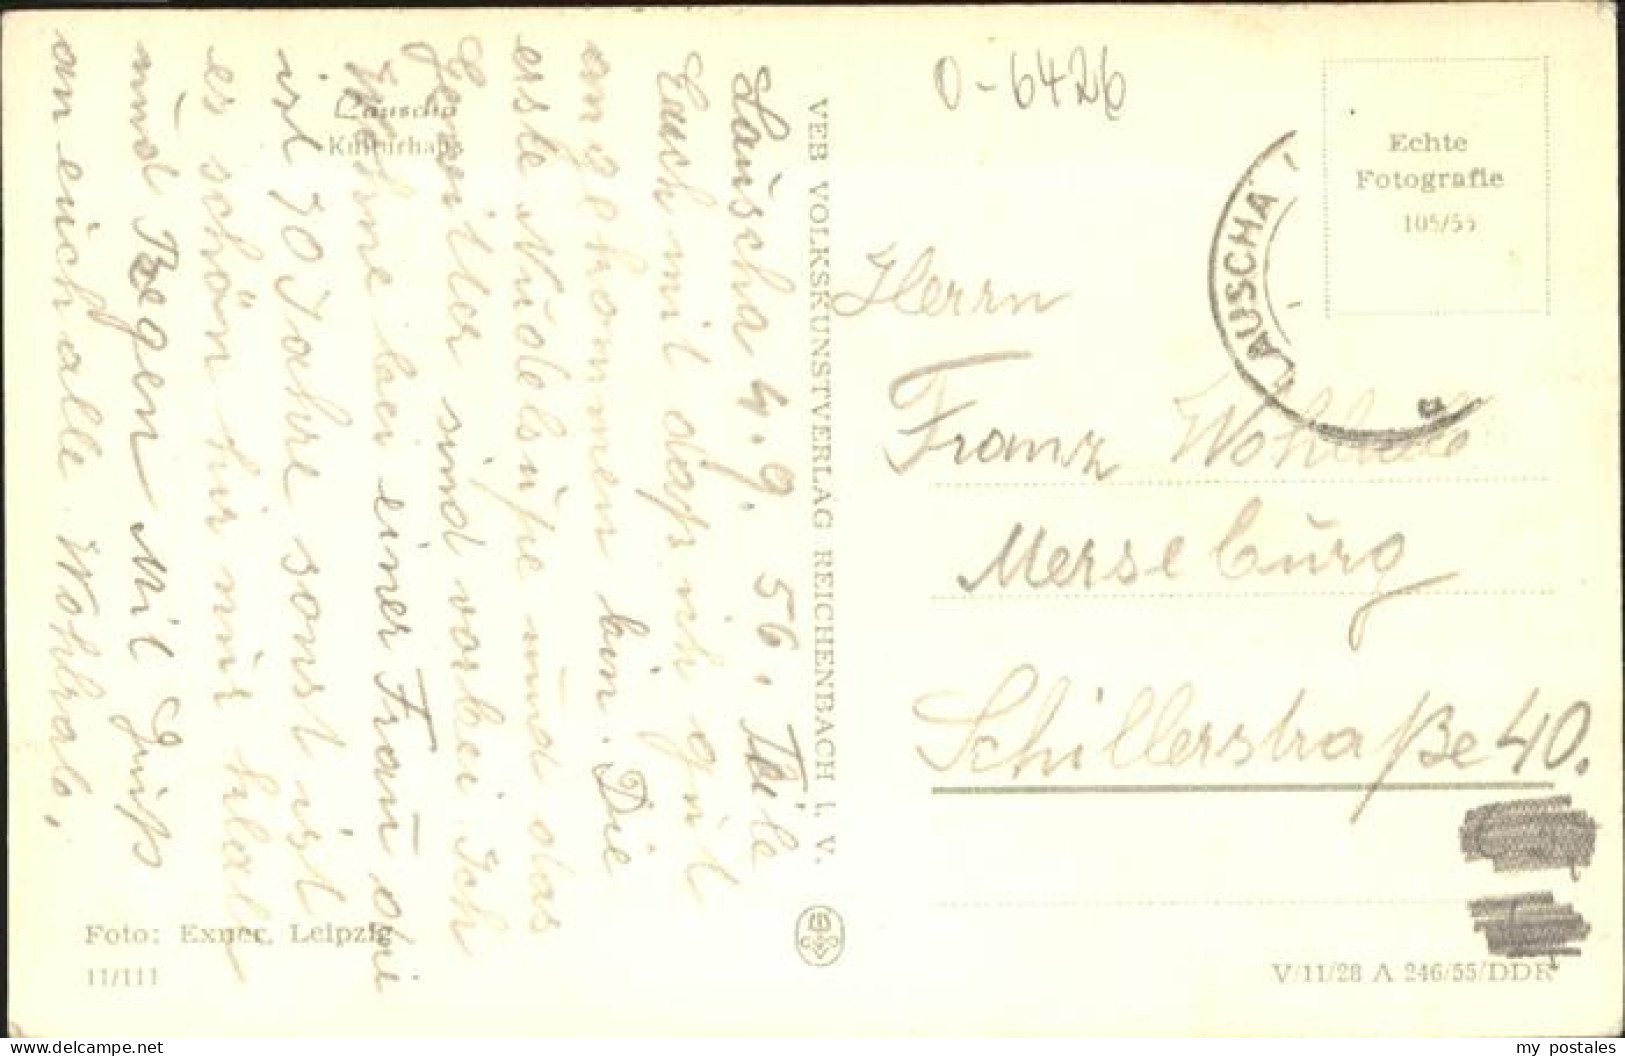 Lauscha
Kulturhaus
Lauscha 4.9.56. Teile
Euch mit daß ich gut
angekommen bin. Die
erste Nudelsupe und das
Gewitter sind vorbei Ich
wohne bei einer Frau die
ist 70 Jahre sonst ist
es schön hir nur
und Regen Mit Gruß
an euch alle Wohlrab.
Foto: Exner, Leipzig
11/111
VEB VOLKSKUNSTVERLAG REICHENBACH I. V.
O-6426
Echte
Fotografie
105/55
LAUSCHA
Herrn
Franz
Merseburg
Schillerstraße 40.
V/11/28 A 246/55/DDR
my_postales